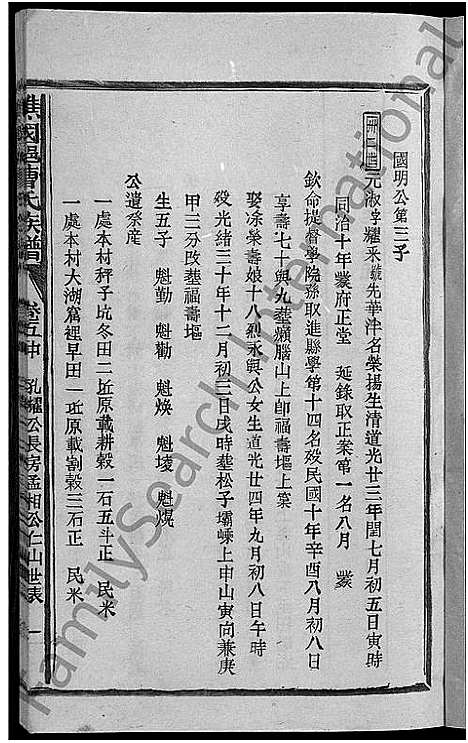 國明公第三子
卅二世元淑字耀釆號先華泮名榮揚生清道光廿三年閏七月初五日寅時
同治十年蒙府正堂 延錄取正案第一名八月 蒙
欽命提督學院孫取進縣學第十四名歿民國十年辛酉八月初八日
享壽七十與九塟癩腦山上卽福壽塸上棠
娶凃榮壽娘十八烈永與公女生道光廿四年九月初八日午時
歿光緒三十年十二月初三日戌時塟松子壩嵊上申山寅向兼庚
甲三分改塟福壽塸
生五子 魁勤 魁勷 魁煥 魁堎 魁熀
公遺祭産
一處本村秤子坑冬田二坵原載耕穀一石五斗正 民米
一處本村大湖窩裡早田一坵原載割穀三石正 民米
譙國邑曹氏族譜 卷五中 孔耀公長房孟相公仁山世表 一
FamilySearch International